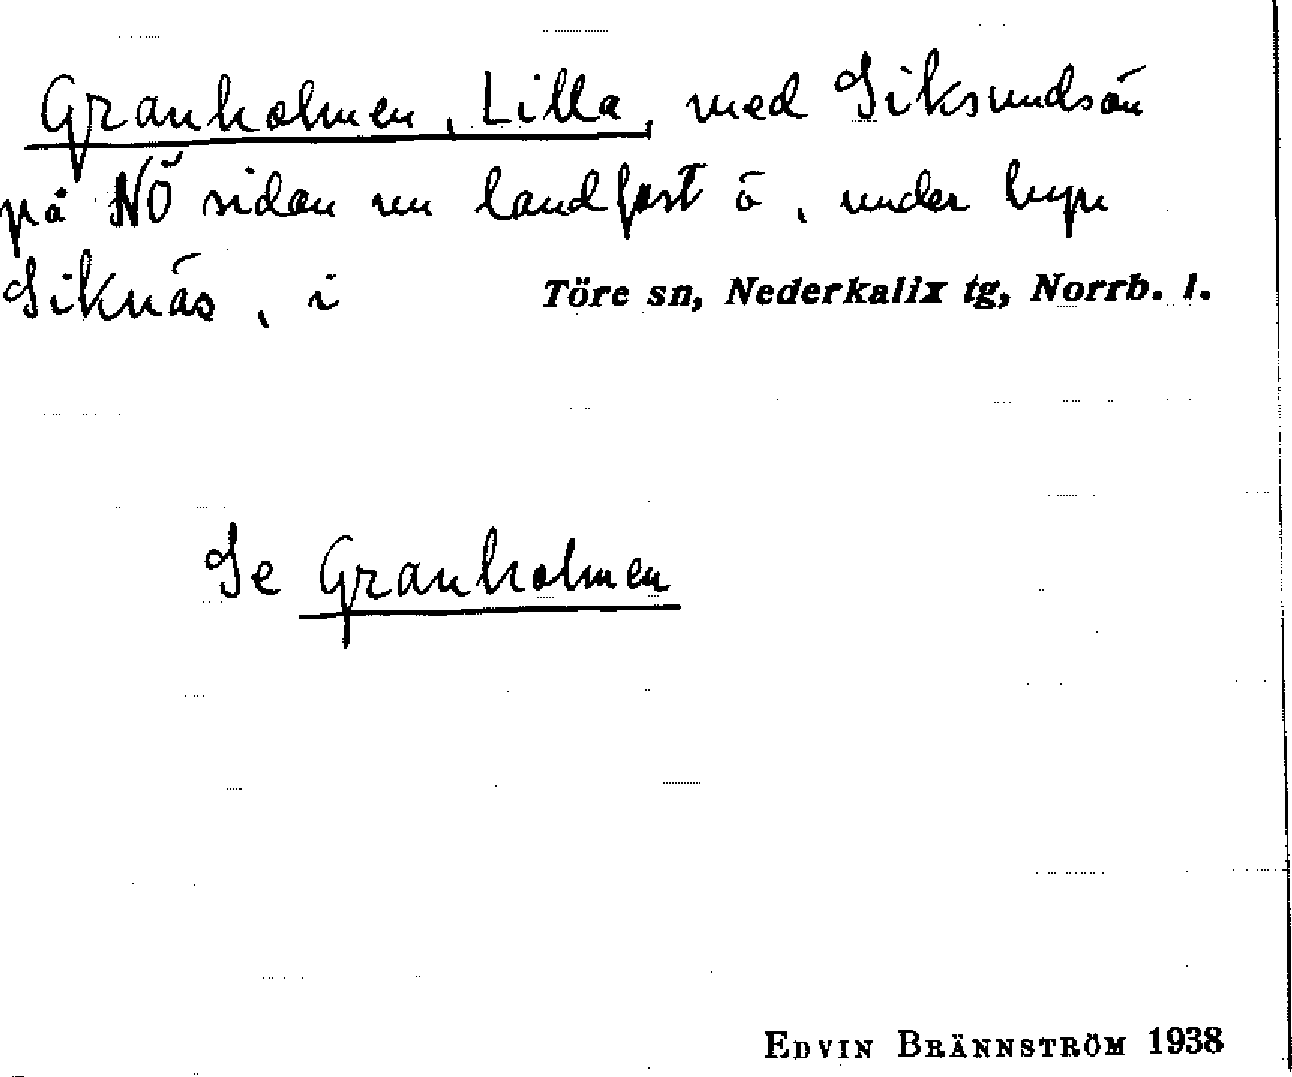 Granholmen, Lilla, med Siksundsön
på NÖ sidan nu landfast ö, under byn
Siknäs, i Töre sn, Nederkalix tg, Norrb. l.
Se Granholmen
EDVIN BRÄNNSTRÖM 1938